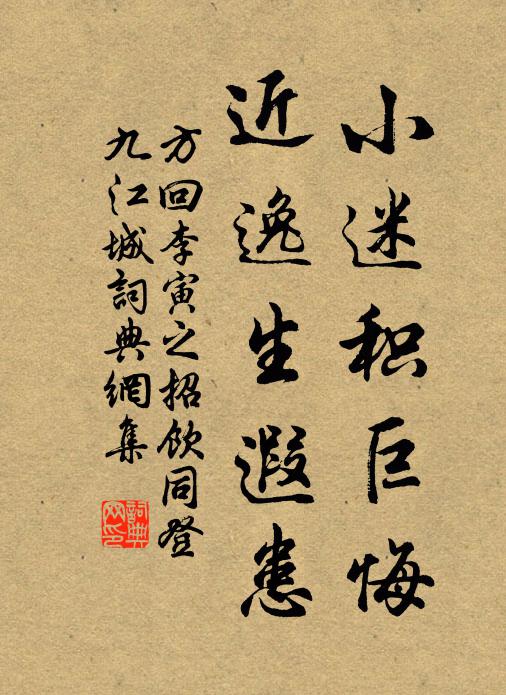 小迷积巨悔
近逸生遐患
方回李寅之招飲同登
九江城詞典網集
詞典
网印